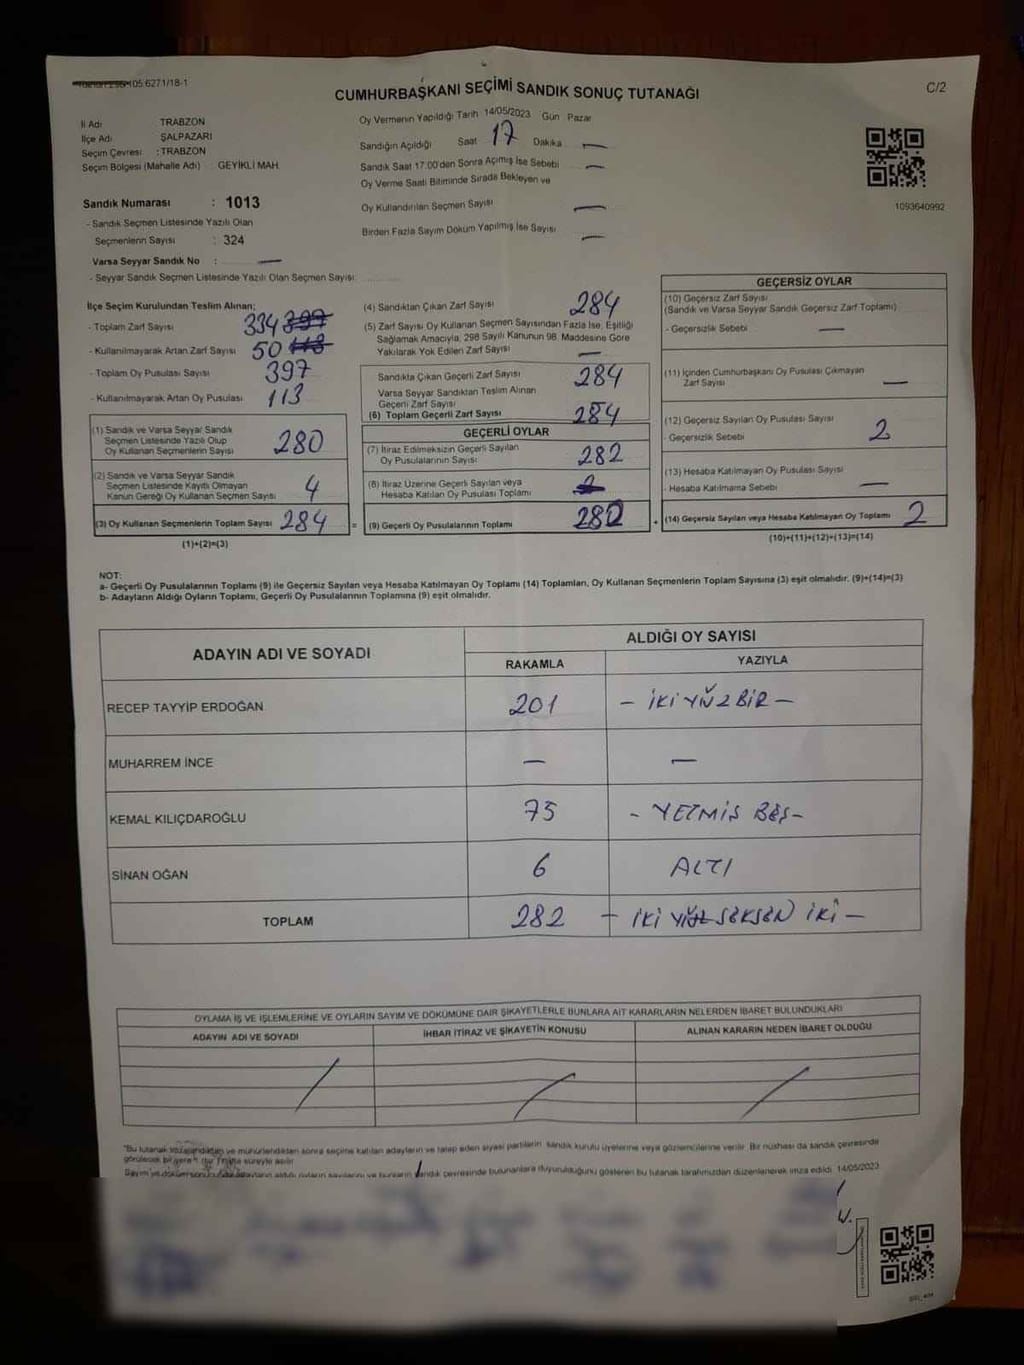 105 6271/18-1
C/2
CUMHURBAŞKANI SEÇİMİ SANDIK SONUÇ TUTANAĞI
İl Adı TRABZON
İlçe Adı ŞALPAZARI
Seçim Çevresi : TRABZON
Seçim Bölgesi (Mahalle Adı) GEYİKLİ MAH.
Sandık Numarası : 1013
- Sandık Seçmen Listesinde Yazılı Olan
Seçmenlerin Sayısı : 324
Varsa Seyyar Sandık No : —
- Seyyar Sandık Seçmen Listesinde Yazılı Olan Seçmen Sayısı
Oy Vermenin Yapıldığı Tarih 14/05/2023 Gün Pazar
Sandığın Açıldığı Saat 17 Dakika —
Sandık Saat 17.00'den Sonra Açımış İse Sebebi —
Oy Verme Saati Bitiminde Sırada Bekleyen ve
Oy Kullandırılan Seçmen Sayısı —
Birden Fazla Sayım Döküm Yapılmış İse Sayısı —
1093640992
İlçe Seçim Kurulundan Teslim Alınan;
- Toplam Zarf Sayısı 334 397
- Kullanılmayarak Artan Zarf Sayısı 50 113
- Toplam Oy Pusulası Sayısı 397
- Kullanılmayarak Artan Oy Pusulası 113
(1) Sandık ve Varsa Seyyar Sandık
Seçmen Listesinde Yazılı Olup
Oy Kullanan Seçmenlerin Sayısı 280
(2) Sandık ve Varsa Seyyar Sandık
Seçmen Listesinde Kayıtlı Olmayan
Kanun Gereği Oy Kullanan Seçmen Sayısı 4
(3) Oy Kullanan Seçmenlerin Toplam Sayısı 284 =
(1)+(2)=(3)
(4) Sandıktan Çıkan Zarf Sayısı 284
(5) Zarf Sayısı Oy Kullanan Seçmen Sayısından Fazla İse, Eşitliği
Sağlamak Amacıyla, 298 Sayılı Kanunun 98. Maddesine Göre
Yakılarak Yok Edilen Zarf Sayısı —
Sandıkta Çıkan Geçerli Zarf Sayısı 284
Varsa Seyyar Sandıktan Teslim Alınan
Geçerli Zarf Sayısı
(6) Toplam Geçerli Zarf Sayısı 284
GEÇERLİ OYLAR
(7) İtiraz Edilmeksizin Geçerli Sayılan
Oy Pusulalarının Sayısı 282
(8) İtiraz Üzerine Geçerli Sayılan veya
Hesaba Katılan Oy Pusulası Toplamı
(9) Geçerli Oy Pusulalarının Toplamı 282 +
GEÇERSİZ OYLAR
(10) Geçersiz Zarf Sayısı
(Sandık ve Varsa Seyyar Sandık Geçersiz Zarf Toplamı)
- Geçersizlik Sebebi —
(11) İçinden Cumhurbaşkanı Oy Pusulası Çıkmayan
Zarf Sayısı —
(12) Geçersiz Sayılan Oy Pusulası Sayısı 2
- Geçersizlik Sebebi
(13) Hesaba Katılmayan Oy Pusulası Sayısı
- Hesaba Katılmama Sebebi —
(14) Geçersiz Sayılan veya Hesaba Katılmayan Oy Toplamı 2
(10)+(11)+(12)+(13)=(14)
NOT:
a- Geçerli Oy Pusulalarının Toplamı (9) ile Geçersiz Sayılan veya Hesaba Katılmayan Oy Toplamı (14) Toplamları, Oy Kullanan Seçmenlerin Toplam Sayısına (3) eşit olmalıdır. (9)+(14)=(3)
b- Adayların Aldığı Oyların Toplamı, Geçerli Oy Pusulalarının Toplamına (9) eşit olmalıdır.
ADAYIN ADI VE SOYADI
ALDIĞI OY SAYISI
RAKAMLA YAZIYLA
RECEP TAYYİP ERDOĞAN 201 — İKİ YÜZ BİR —
MUHARREM İNCE — —
KEMAL KILIÇDAROĞLU 75 - YETMİŞ BEŞ -
SİNAN OĞAN 6 ALTI
TOPLAM 282 — İKİ YÜZ SEKSEN İKİ —
OYLAMA İŞ VE İŞLEMLERİNE VE OYLARIN SAYIM VE DÖKÜMÜNE DAİR ŞİKAYETLERLE BUNLARA AİT KARARLARIN NELERDEN İBARET BULUNDUKLARI
ADAYIN ADI VE SOYADI İHBAR İTİRAZ VE ŞİKAYETİN KONUSU ALINAN KARARIN NEDEN İBARET OLDUĞU
/ / /
"Bu tutanak imzalandıktan ve mühürlendikten sonra seçime katılan adayların ve talep eden siyasi partilerin sandık kurulu üyelerine veya gözlemcilerine verilir. Bir nüshası da sandık çevresinde
görülecek bir yere 1 hafta süreyle asılır.
sandık çevresinde bulunanlara duyurulduğunu gösteren bu tutanak tarafımızdan düzenlenerek imza edildi. 14/05/2023